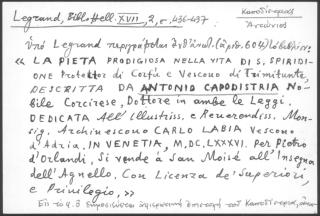 Καποδίστριας
Ἀντώνιος
Legrand, Biblioth. Hell. XVII, 2, σ. 436-437.
Ὑπὸ Legrand περιγράφεται (ἀριθ. 604)
« LA PIETA PRODIGIOSA NELLA VITA DI S. SPIRIDI-
ONE Protettor di Corfú e Vescouo di Trimitunte
DESCRITTA DA ANTONIO CAPODISTRIA No-
bile Corcirese, Dottore in ambe le Leggi.
DEDICATA All'Illustriss. e Reuerendiss. Mon-
sig. Archiuescouo CARLO LABIA Vescouo
d'Adria. IN VENETIA, M.DC.LXXXVI. Per Pietro
d'Orlandi, Si vende à San Moisè all'Insegna
dell'Agnello. Con Licenza de' Superiori,
e Priuilegio, »
τοῦ Καποδίστρια,